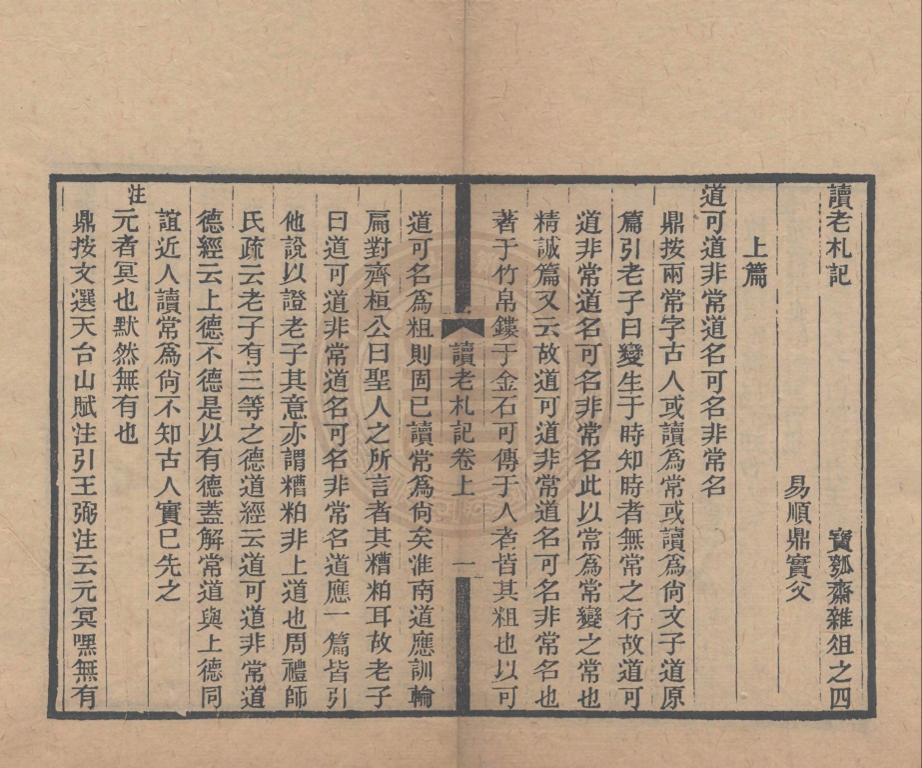 讀老札記　寶瓠齋雜俎之四
易順鼎實父
上篇
道可道非常道名可名非常名
鼎按兩常字古人或讀爲常或讀爲尙文子道原
篇引老子曰變生于時知時者無常之行故道可
道非常道名可名非常名此以常爲常變之常也
精誠篇又云故道可道非常道名可名非常名也
著于竹帛鏤于金石可傳于人者皆其粗也以可
讀老札記卷上　一
道可名爲粗則固已讀常爲尙矣淮南道應訓輪
扁對齊桓公曰聖人之所言者其糟粕耳故老子
曰道可道非常道名可名非常名道應一篇皆引
他說以證老子其意亦謂糟粕非上道也周禮師
氏疏云老子有三等之德道經云道可道非常道
德經云上德不德是以有德蓋解常道與上德同
誼近人讀常爲尙不知古人實已先之
注元者冥也默然無有也
鼎按文選天台山賦注引王弼注云元冥嘿無有